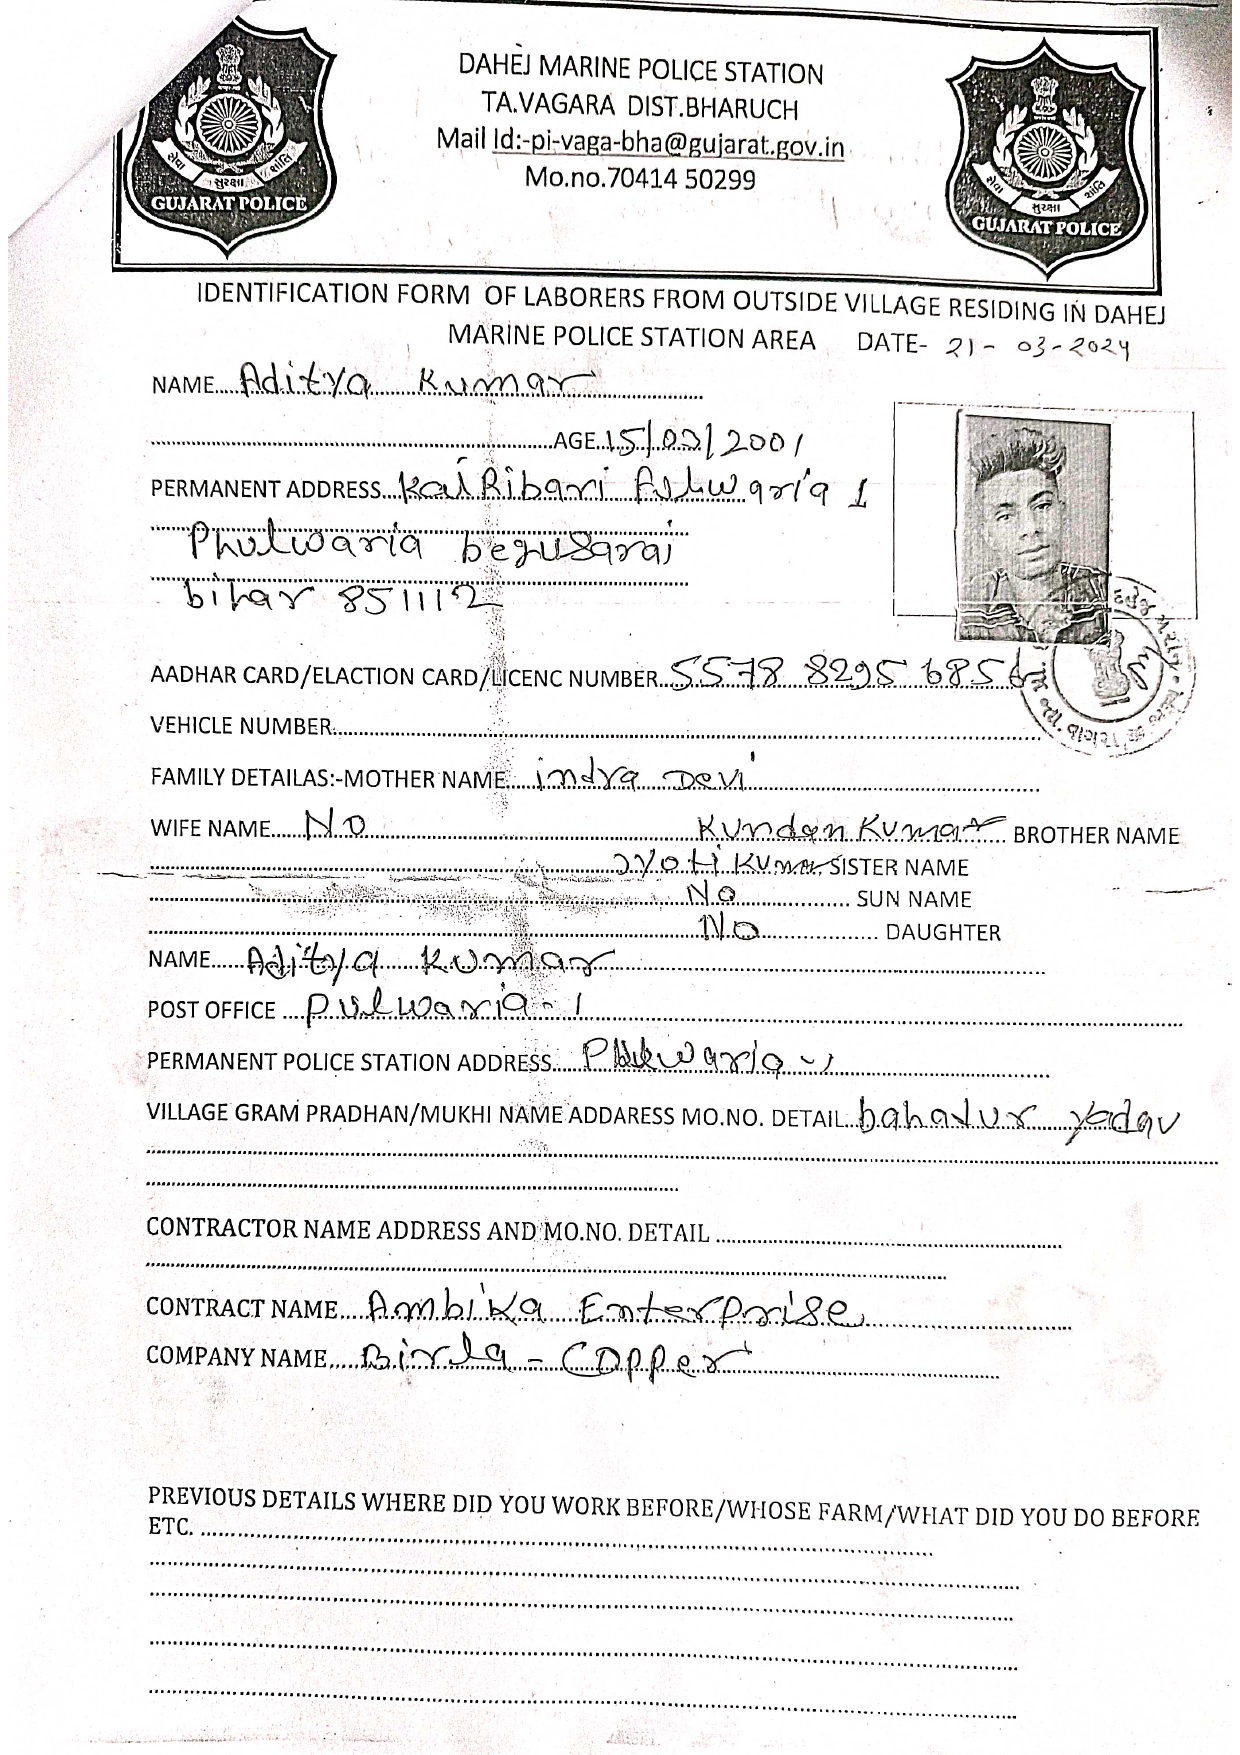 DAHEJ MARINE POLICE STATION
TA.VAGARA DIST.BHARUCH
Mail Id:-pi-vaga-bha@gujarat.gov.in
Mo.no.70414 50299
સેવા સુરક્ષા શાંતિ
GUJARAT POLICE
સેવા સુરક્ષા શાંતિ
GUJARAT POLICE
IDENTIFICATION FORM OF LABORERS FROM OUTSIDE VILLAGE RESIDING IN DAHEJ
MARINE POLICE STATION AREA DATE- 21-03-2024
NAME....Aditya Kumar
AGE..15/03/2001
PERMANENT ADDRESS... 1
Phulwaria begusarai
bihar 851112
AADHAR CARD/ELACTION CARD/LICENC NUMBER..5578 8295 6856
VEHICLE NUMBER
FAMILY DETAILAS:-MOTHER NAME....indra Devi
WIFE NAME.....No Kundan Kumar BROTHER NAME
Jyoti Kumar SISTER NAME
No SUN NAME
No DAUGHTER
NAME....Aditya Kumar
POST OFFICE ....Pulwaria-1
PERMANENT POLICE STATION ADDRESS....
VILLAGE GRAM PRADHAN/MUKHI NAME ADDARESS MO.NO. DETAIL..bahadur yadav
CONTRACTOR NAME ADDRESS AND MO.NO. DETAIL
CONTRACT NAME....Ambika Enterprise
COMPANY NAME.....Birla-Copper
PREVIOUS DETAILS WHERE DID YOU WORK BEFORE/WHOSE FARM/WHAT DID YOU DO BEFORE
ETC.